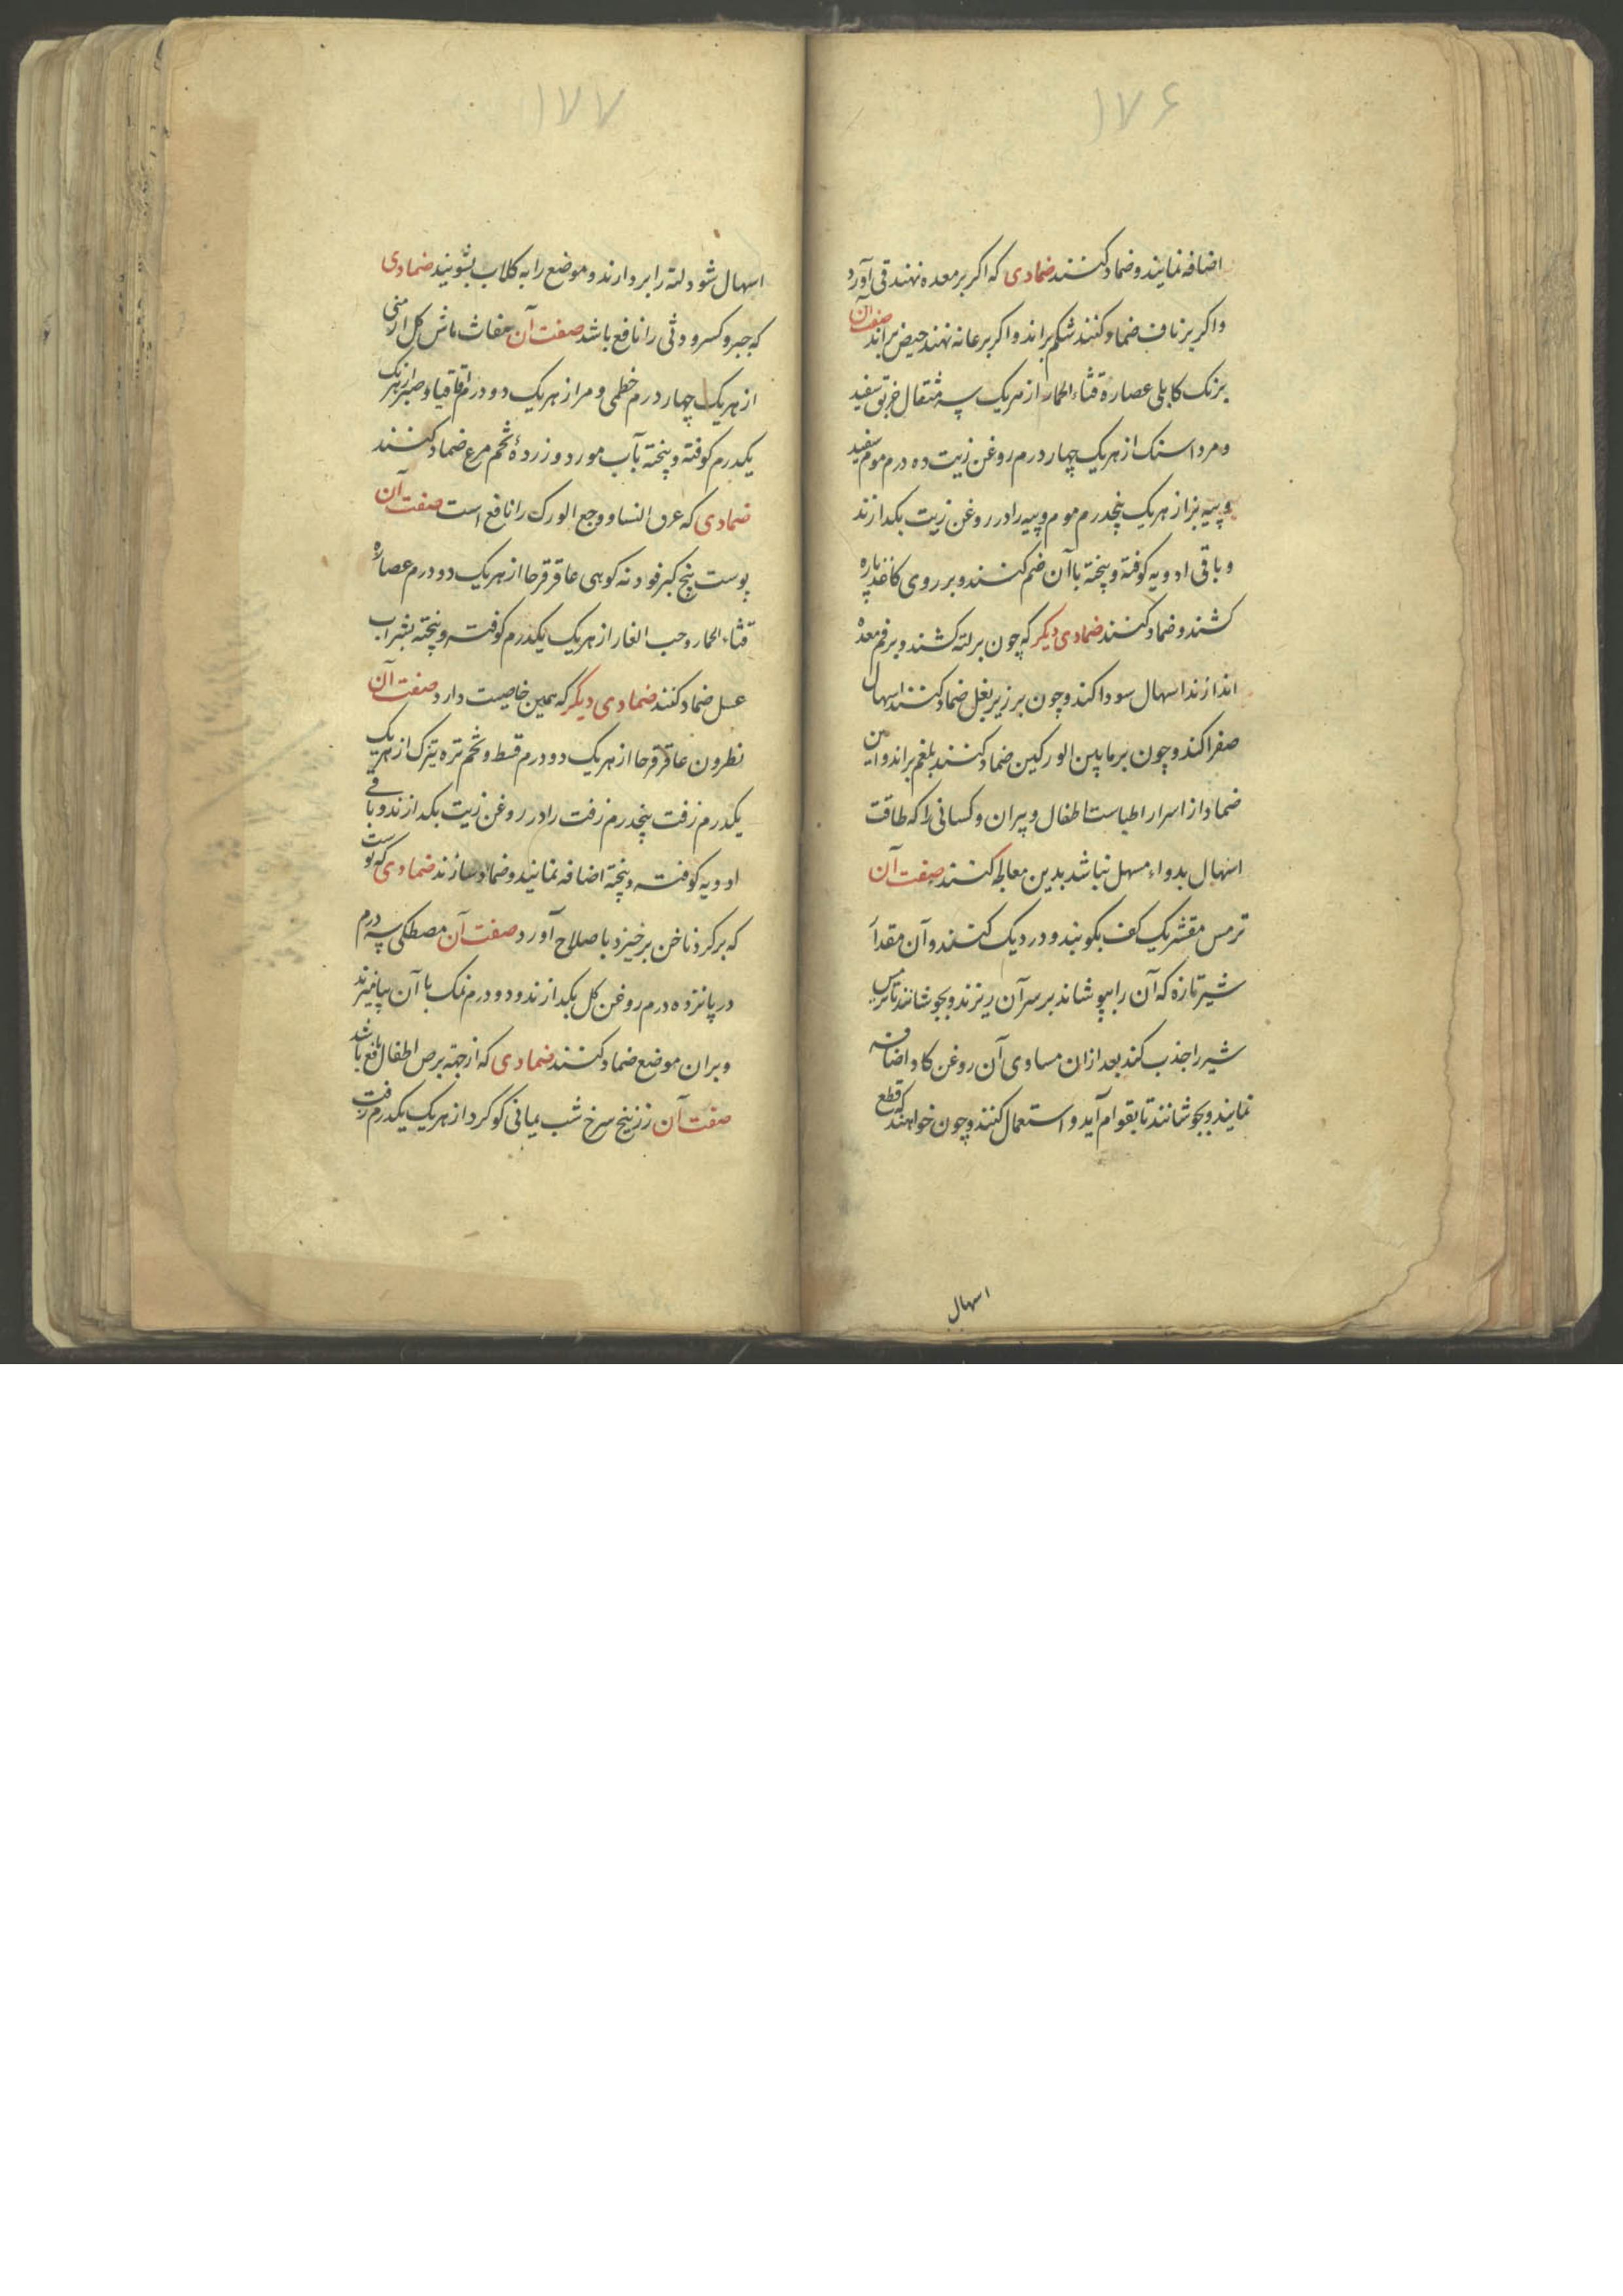 ۱۷۶
اضافه نمایند و ضماد کنند ضمادی که اکر بر معده نهند قی آورد
واکر بر ناف ضماد کنند شکم براند واکر بر عانه نهند حیض براند صفت آن
برنک کابلی عصاره قثاء الحمار از هریک سه مثقال خربق سفید
و مرداسنک از هریک چهار درم روغن زیت ده درم موم سفید
و پیه بز از هریک پنجدرم موم و پیه را در روغن زیت بکدازند
و باقی ادویه کوفته و پخته با آن ضم کنند و بر روی کاغذ پاره
کشند و ضماد کنند ضمادی دیکر که چون بر لته کشند و بر فم معده
اندازند اسهال سودا کند و چون بر زیر بغل ضماد کنند اسهال
صفرا کند و چون بر مابین الورکین ضماد کنند بلغم براند و این
ضماد از اسرار اطباست اطفال و پیران و کسانی را که طاقت
اسهال بدواء مسهل نباشد بدین معالجه کنند صفت آن
ترمس مقشر یک کف بکوبند و در دیک کنند و آن مقدار
شیر تازه که آن را بپوشاند بر سر آن ریزند و بجوشانند تا ترمس
شیر را جذب کند بعد ازان مساوی آن روغن کاو اضافه
نمایند و بجوشانند تا بقوام آید و استعمال کنند و چون خواهند که قطع
اسهال
۱۷۷
اسهال شود لته را بردارند و موضع را به کلاب بشویند ضمادی
که جبر و کسر و وثی را نافع باشد صفت آن مغاث ماش کل ارمنی
از هریک چهار درم خطمی و مر از هریک دو درم اقاقیا و صبر از هریک
یکدرم کوفته و پخته بآب مورد و زردهٔ تخم مرغ ضماد کنند
ضمادی که عرق النسا و وجع الورک را نافع است صفت آن
پوست بیخ کبر فودنه کوهی عاقرقرحا از هریک دو درم عصاره
قثاء الحمار و حب الغار از هریک یکدرم کوفته و پخته بشراب
عسل ضماد کنند ضمادی دیکر که همین خاصیت دارد صفت آن
نطرون عاقرقرحا از هریک دو درم قسط و تخم تره تیزک از هریک
یکدرم زفت پنجدرم زفت را در روغن زیت بکدازند و باقی
ادویه کوفته و پخته اضافه نمایند و ضماد سازند ضمادی که پوست
که بر کرد ناخن برخیزد با صلاح آورد صفت آن مصطکی سه درم
در پانزده درم روغن کل بکدازند و دو درم نمک با آن بیامیزند
و بران موضع ضماد کنند ضمادی که از جهة برص اطفال نافع باشد
صفت آن زرنیخ سرخ شب یمانی کوکرد از هریک یکدرم زفت